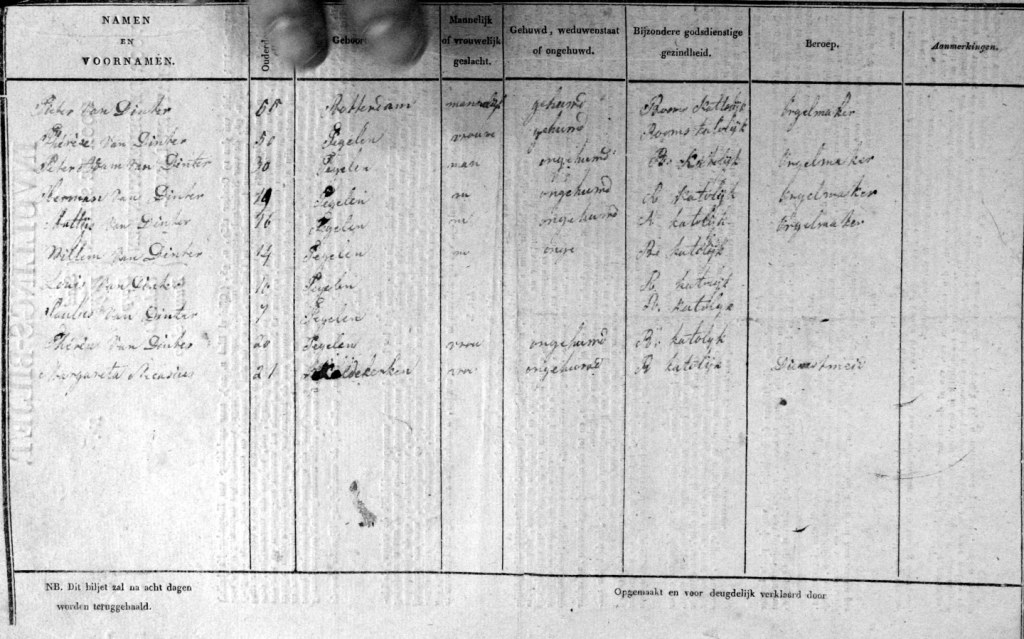 NAMEN EN VOORNAMEN. Ouderd Geboort Mannelijk of vrouwelijk geslacht. Gehuwd, weduwenstaat of ongehuwd. Bijzondere godsdienstige gezindheid. Beroep. Aanmerkingen.
Pieter Van Dinter 55 Rotterdam mannelijk gehuwd Rooms Katholijk Orgelmaker
Thérèse van Dinter 50 Tegelen vrouw gehuwd Rooms katolijk
Peter Adam van Dinter 30 Tegelen man ongehuwd R. Katolijk Orgelmaker
Herman Van Dinter Tegelen m ongehuwd R. Katolijk Orgelmaker
Mattijs van Dinter 16 Tegelen m ongehuwd R. katolijk Orgelmaker
Willem Van Dinter 14 Tegelen m R. katolijk
Louis Van Dinter Tegelen R. katolijk
van Dinter 7 Tegelen R. katolijk
Thérèse Van Dinter 20 Tegelen vrou ongehuwd R. katolyk
Margareta 21 vro ongehuwd R katolijk
NB. Dit biljet zal na acht dagen
worden teruggehaald.
Opgemaakt en voor deugdelijk verklaard door